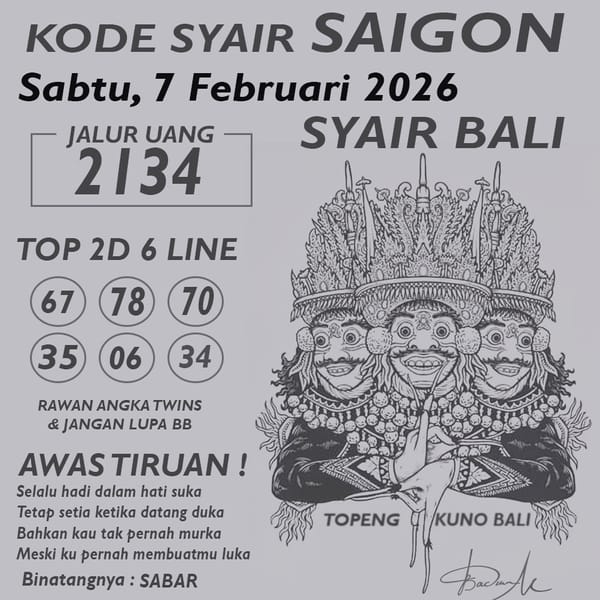 KODE SYAIR SAIGON
Sabtu, 7 Februari 2026
SYAIR BALI
JALUR UANG
2134
TOP 2D 6 LINE
67 78 70
35 06 34
RAWAN ANGKA TWINS
& JANGAN LUPA BB
AWAS TIRUAN !
Selalu hadi dalam hati suka
Tetap setia ketika datang duka
Bahkan kau tak pernah murka
Meski ku pernah membuatmu luka
Binatangnya : SABAR
TOPENG KUNO BALI